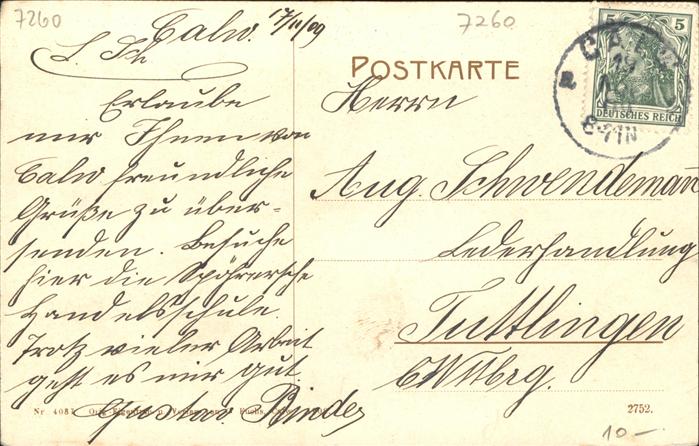 7260
7260
Calw. 17/11/09
L. Sch
Erlaube
mir Ihnen von
Calw freundliche
Grüße zu über-
senden. Besuche
hier die Spöhrersche
Handelsschule.
Trotz vieler Arbeit
geht es mir gut.
Gustav Binder
POSTKARTE
Herrn
Aug. Schwendemann
Lederhandlung
Tuttlingen
Wttbrg.
5 5
DEUTSCHES REICH
CALW
19
8-11N
Nr 4087
2752.
10 —